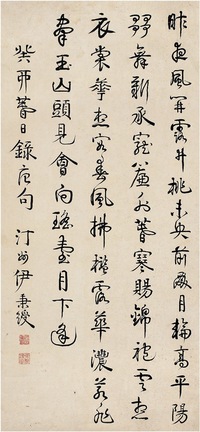 昨夜風開露井桃未央前殿月輪高平陽
歌舞新承寵簾外春寒賜錦袍雲想
衣裳華想容春風拂檻露華濃若非
羣玉山頭見會向瑤臺月下逢
癸卯春日錄唐句 汀州伊秉綬